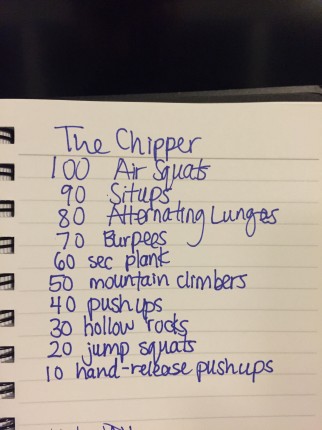 The Chipper
100 Air Squats
90 Situps
80 Alternating Lunges
70 Burpees
60 sec plank
50 mountain climbers
40 pushups
30 hollow rocks
20 jump squats
10 hand-release pushups